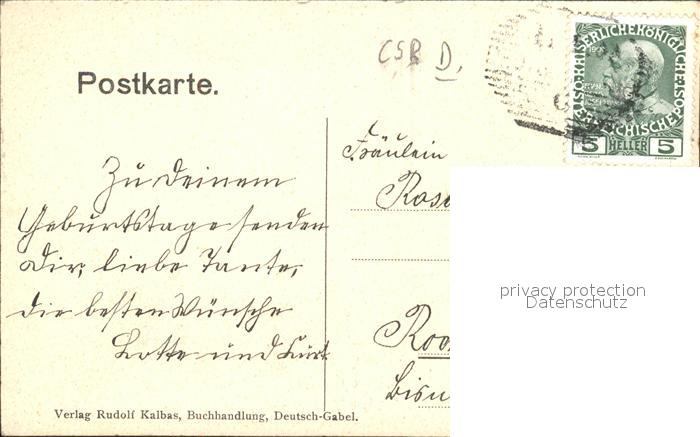 CSR D.
Postkarte.
KAISERLICHEKÖNIGLICHE
ÖSTERREICHISCHE POST
1908
5 HELLER 5
Zu Deinem
Geburtstage senden
Dir, liebe Tante,
die besten Wünsche
Lotte und Kurt.
Fräulein
Rosa
privacy protection
Datenschutz
Verlag Rudolf Kalbas, Buchhandlung, Deutsch-Gabel.